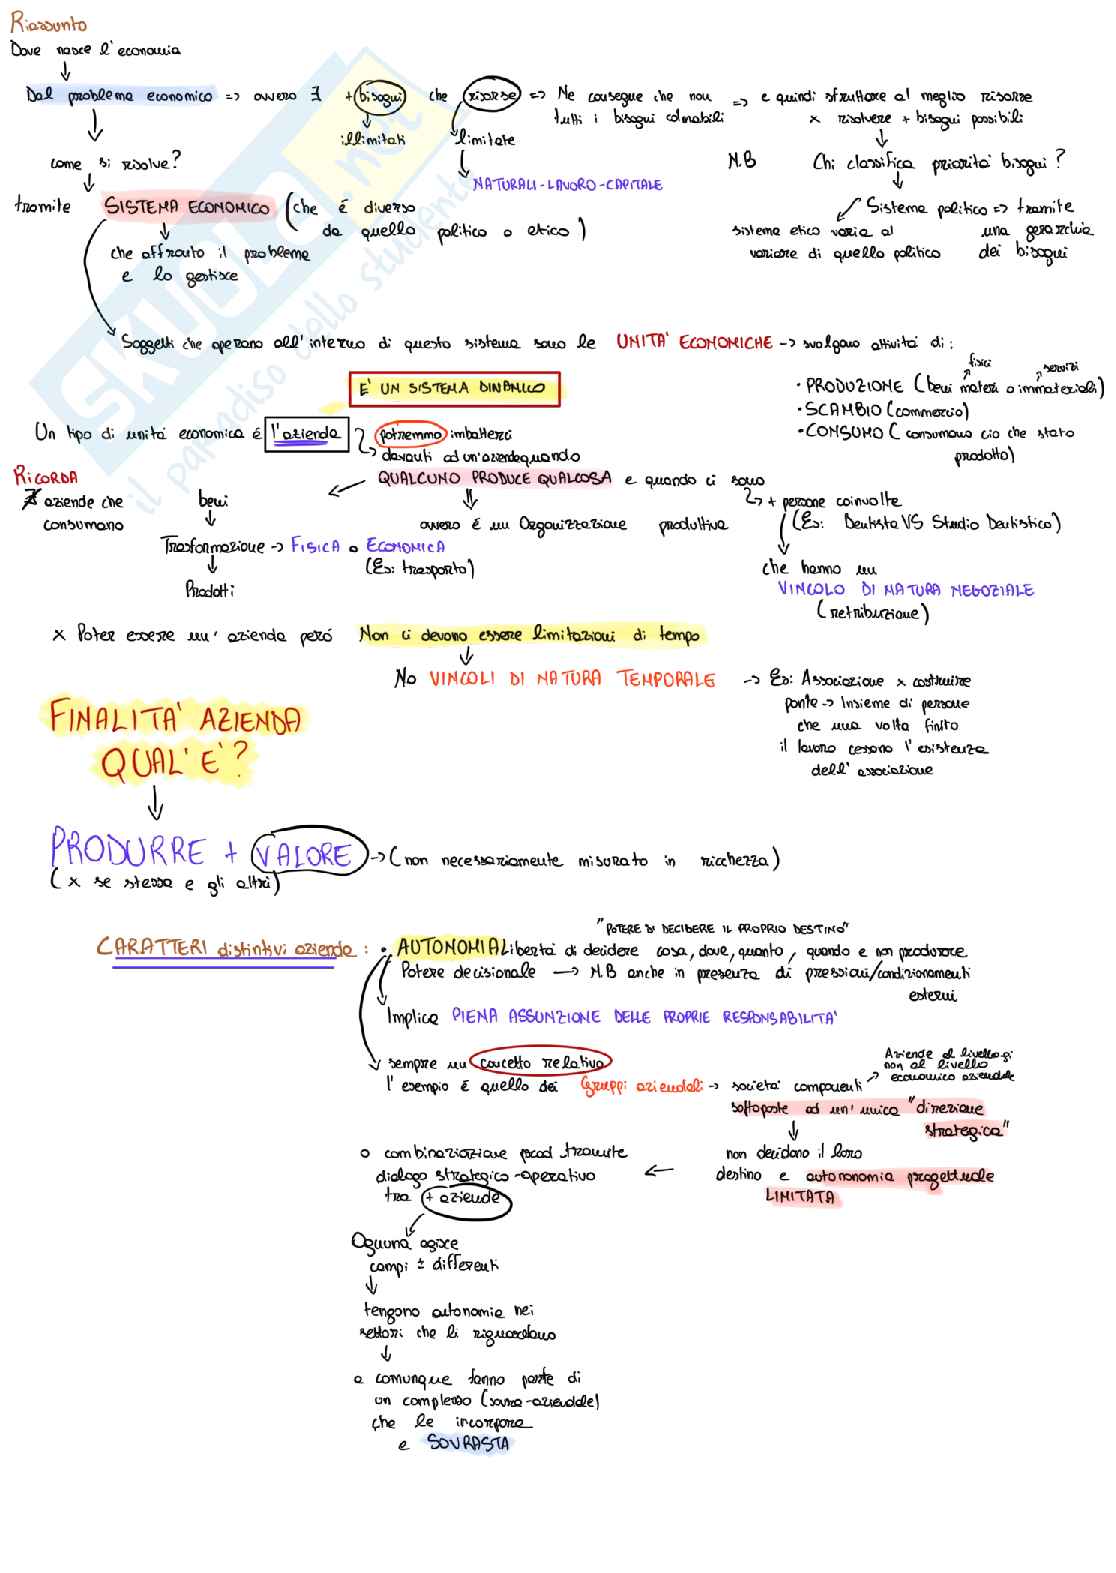 Riassunto
Dove nasce l'economia
↓
Dal problema economico => ovvero ∃ + bisogni che risorse => Ne consegue che non => e quindi sfruttare al meglio risorse
tutti i bisogni colmabili
x risolvere + bisogni possibili
illimitati
limitate
NATURALI-LAVORO-CAPITALE
come si risolve?
N.B Chi classifica priorità bisogni?
tramite SISTEMA ECONOMICO (che é diverso
da quello politico o etico)
Sistema politico => tramite
una gerarchia
dei bisogni
sistema etico varia al
variare di quello politico
che affronta il problema
e lo gestisce
Soggetti che operano all'interno di questo sistema sono le UNITA' ECONOMICHE -> svolgono attività di:
fisici
servizi
• PRODUZIONE (beni materiali o immateriali)
• SCAMBIO (commercio)
• CONSUMO (consumano cio che stato
prodotto)
E' UN SISTEMA DINAMICO
Un tipo di unità economica é l'azienda
potremmo imbatterci
davanti ad un'azienda quando
QUALCUNO PRODUCE QUALCOSA e quando ci sono
RICORDA
∄ aziende che
consumano
beni
ovvero é un Organizzazione produttiva
+ persone coinvolte
(Es: Dentista VS Studio Dentistico)
Trasformazione -> FISICA o ECONOMICA
(Es: trasporto)
Prodotti
che hanno un
VINCOLO DI NATURA NEGOZIALE
(retribuzione)
x Poter essere un' azienda peró Non ci devono essere limitazioni di tempo
No VINCOLI DI NATURA TEMPORALE -> Es: Associazione x costruire
ponte -> Insieme di persone
che una volta finito
il lavoro cessano l'esistenza
dell' associazione
FINALITA' AZIENDA
QUAL'E'?
PRODURRE + VALORE -> (non necessariamente misurato in ricchezza)
(x se stessa e gli altri)
"POTERE DI DECIDERE IL PROPRIO DESTINO"
CARATTERI distintivi azienda: • AUTONOMIA Libertà di decidere cosa, dove, quanto, quando e non produrre
Potere decisionale -> N.B anche in presenza di pressioni/condizionamenti
esterni
Implica PIENA ASSUNZIONE DELLE PROPRIE RESPONSABILITA'
sempre un concetto relativo
l'esempio é quello dei Gruppi aziendali -> società componenti
Aziende al livello gi
non al livello
economico aziendale
sottoposte ad un'unica "direzione
strategica"
non decidono il loro
destino e autononomia progettuale
LIMITATA
o combinaziazione prod tramite
dialogo strategico-operativo
tra + aziende
Ognuna agisce
campi ± differenti
tengono autonomia nei
settori che li riguardano
e comunque fanno parte di
un complesso (sovra-aziendale)
che le incorpora
e SOVRASTA
skuola.net
il paradiso dello studente